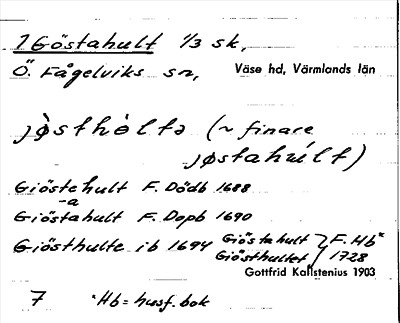 1 Göstahult 1/3 sk,
Ö. Fågelviks sn, Väse hd, Värmlands län
jøsthòltə (~ finare
jøstahúlt)
Giöstehult F. Dödb 1688
-a
Giöstahult F. Dopb 1690
Giösthulte ib 1694 Giöstahult } F. Hb*
Giösthultet } 1728
Gottfrid Kallstenius 1903
7 *Hb = husf. bok